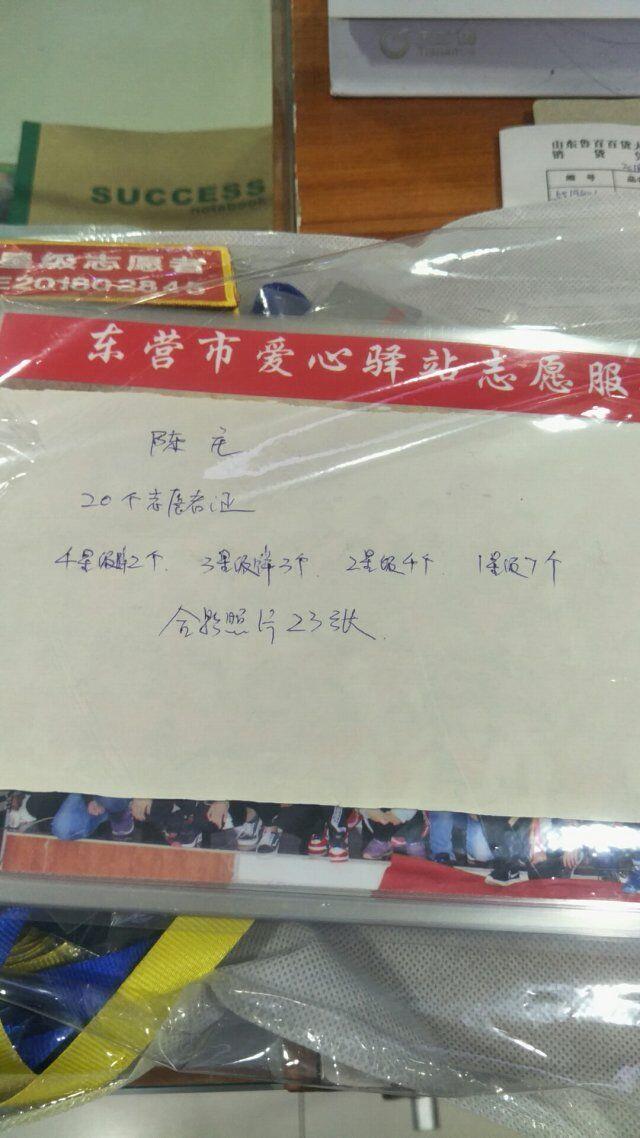 SUCCESS
notebook
山东鲁百百货大
销货
编号
星级志愿者
201802845
东营市爱心驿站志愿服
陈
20个志愿者证
4星级2个. 3星级3个. 2星级4个. 1星级7个
合影照片23张.